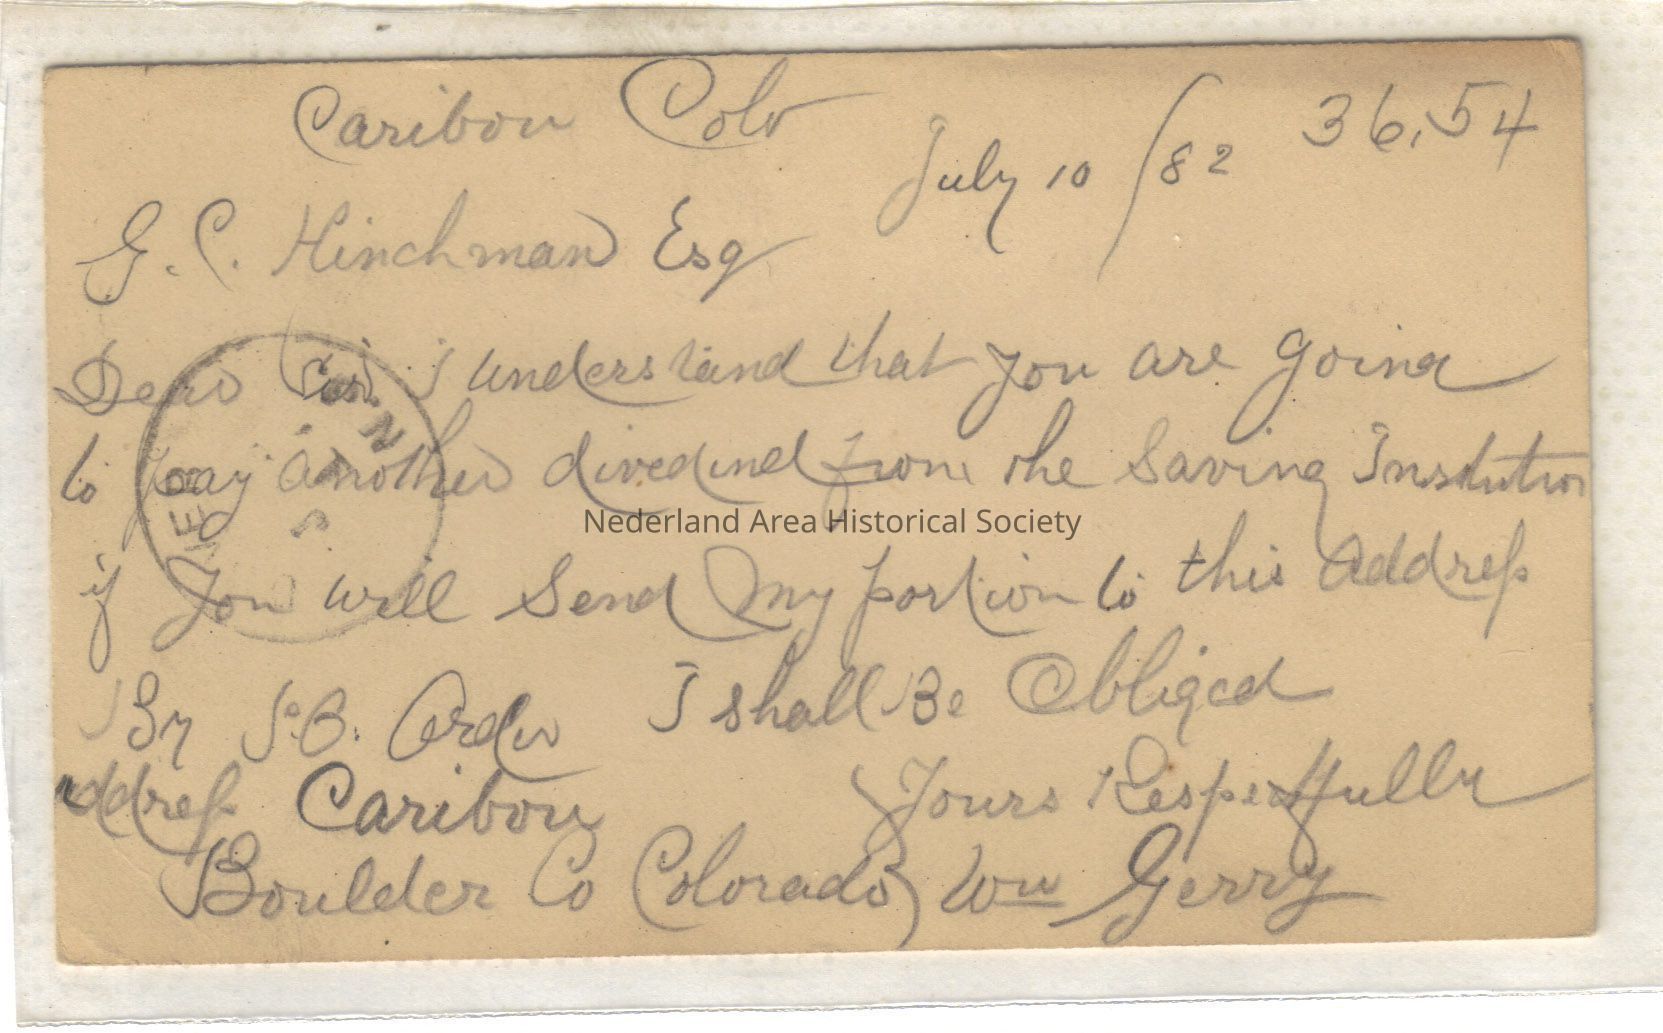 Caribou Colo
July 10 /82 36,54
G. C. Hinchman Esq
Dear Sir I understand that you are going
to pay another divedend from the Saving Instutution
if you will Send My portion to this Address
By P.O. Order I shall Be Obliged
address Caribou Yours Respectfully
Boulder Co Colorado Wm Gerry
Nederland Area Historical Society